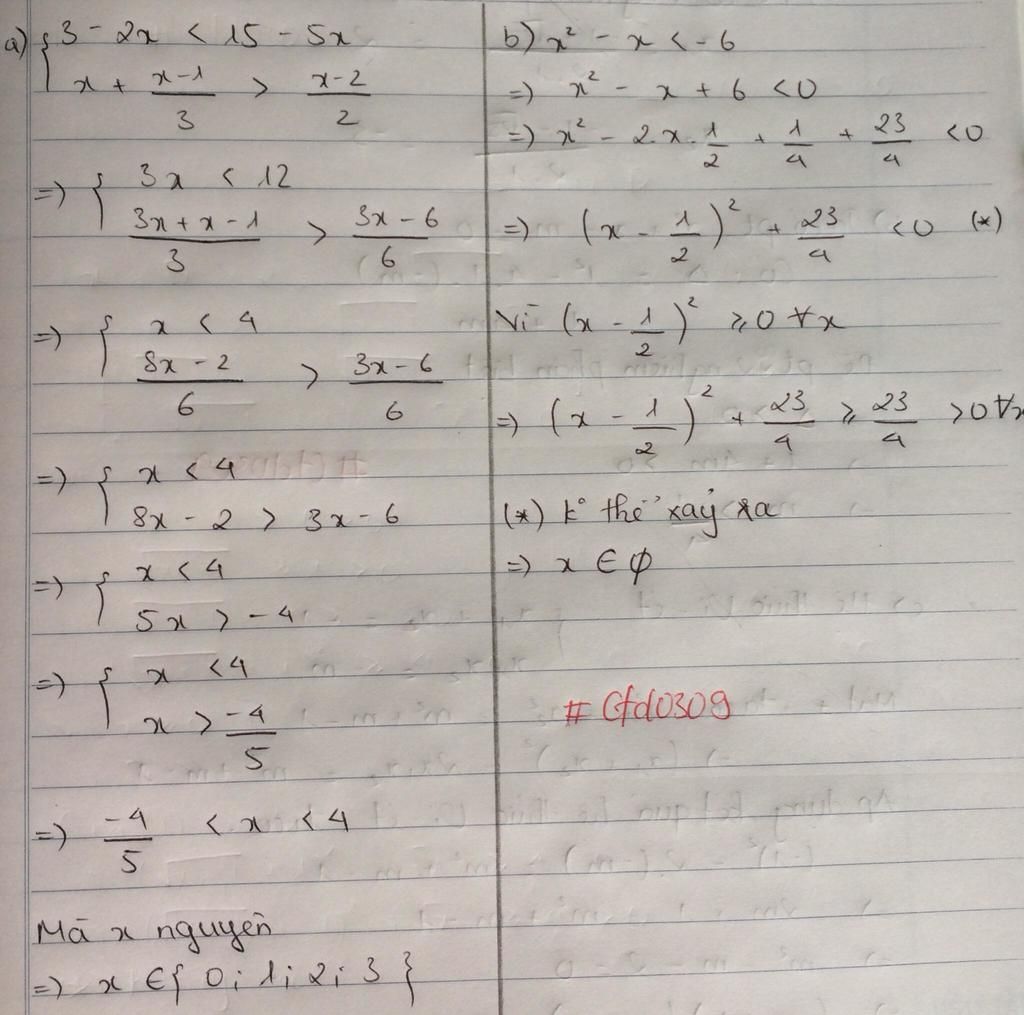 a) { 3 - 2x < 15 - 5x
x + (x-1)/3 > (x-2)/2
=) { 3x < 12
(3x + x - 1)/3 > (3x - 6)/6
=) { x < 4
(8x - 2)/6 > (3x - 6)/6
=) { x < 4
8x - 2 > 3x - 6
=) { x < 4
5x > -4
=) { x < 4
x > -4/5
=) -4/5 < x < 4
Mà x nguyên
=) x ∈ { 0 ; 1 ; 2 ; 3 }
b) x² - x < -6
=) x² - x + 6 < 0
=) x² - 2.x.1/2 + 1/4 + 23/4 < 0
=) (x - 1/2)² + 23/4 < 0 (*)
Vì (x - 1/2)² ≥ 0 ∀x
=) (x - 1/2)² + 23/4 ≥ 23/4 > 0 ∀x
(*) k° thể xảy ra
=) x ∈ ∅
# Gfd0309